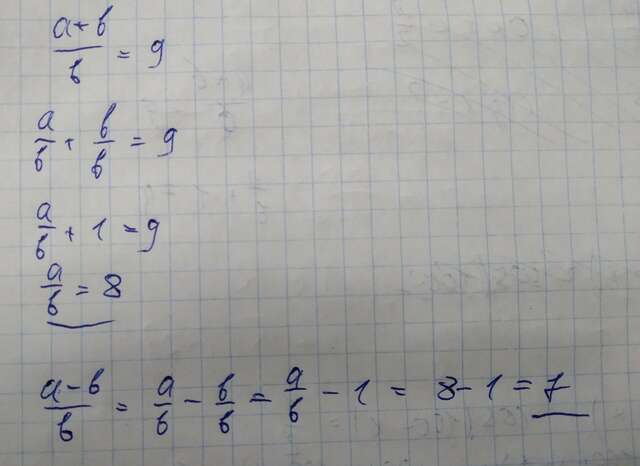 a+b/b = 9
a/b + b/b = 9
a/b + 1 = 9
a/b = 8
a-b/b = a/b - b/b = a/b - 1 = 8-1 = 7